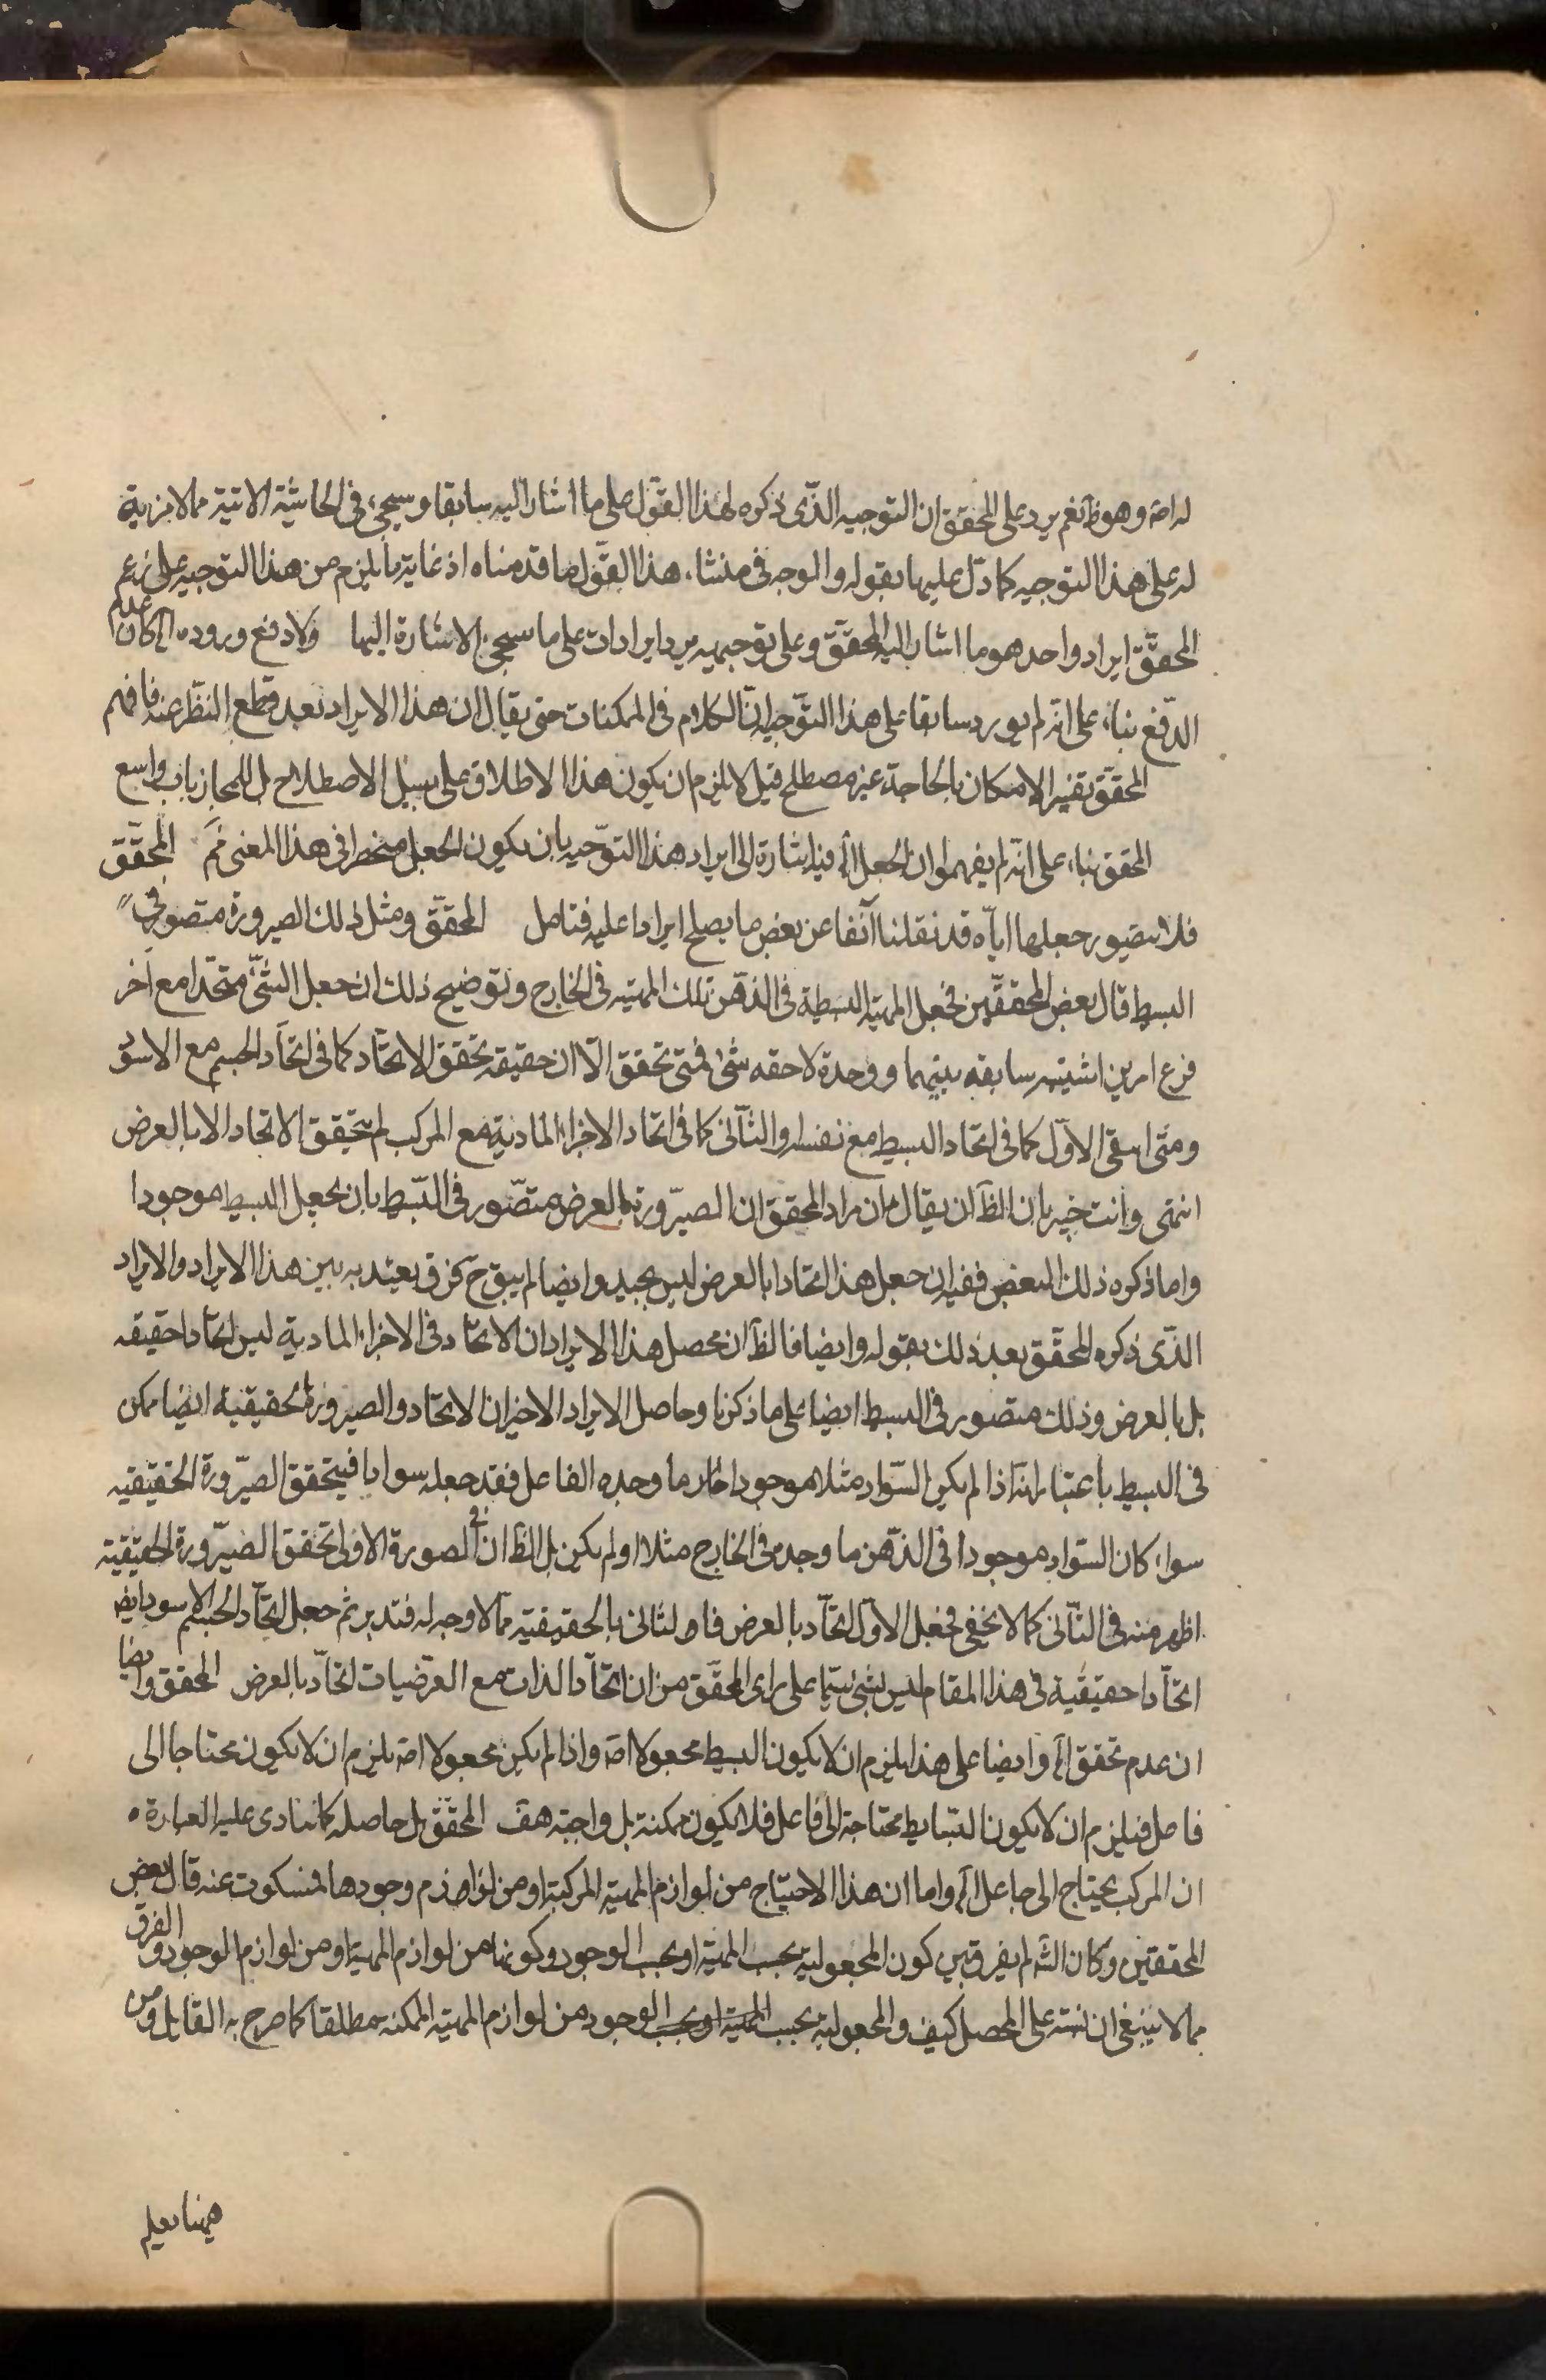 له اصَ وهو ظَ نعم يرد على المحقق ان التوجيه الذّى ذكره لهذا القوّل على ما اشار اليه سابقا وسيجىء فى الحاشية الاتية مما لا مزية
له على هذا التوجيه كما دّل عليها بقوله والوجه فى منشاء هذا القوّل ما قدمناه اذ غاية ما يلزم من هذا التوجيه على زعم
المحقّق ايراد واحد هو ما اشار اليه المحقّق وعلى توجيهه يرد ايرادات على ما سيجىء الاشارة اليها ولا دفع وروده الخ كان عدم
الدّفع بناء على انه لم يورد سابقا على هذا التوّجيه انّ الكلام فى الممكنات حتى يقال ان هذا الايراد بعد قطع النّظر عنه فافهم
المحقّق تفسير الامكان بالحاجة غير مصطلح قيل لا يلزم ان يكون هذا الاطلاق على سبيل الاصطلاح بل المجاز باب واسع
المحقق بناء على انّه لم يفهموا ان الجعل الخ فيه اشارة الى ايراد هذا التوّجيه بان يكون الجعل منحصرا فى هذا المعنى فَهم المحّقق
فلا يتصّور جعلها ايآه قد نقلنا آنفا عن بعض ما يصلح ايرادا عليه فتامل المحقّق ومثل ذلك الصيرورة متصور فى
البسيط قال بعض المحققّين فجعل المهيّة البسيطة فى الذهن تلك المهيّة فى الخارج وتوضيح ذلك ان جعل الشئ متحّدا مع آخر
فرع امرين اثنينيه سابقه بينهما ووحدة لاحقه شئ فمتى تحقق الآان حقيقه تحقق الاتحاد كما فى اتحّاد الجسم مع الاسود
ومتى انتفى الاوّل كما فى اتحاد البسيط مع نفسه او الثّانى كما فى اتحاد الاجزاء الماديّة مع المركب لم يتحقق الاتحاد الا بالعرض
انتهى وانت خبير بان الظّ ان يقال ان مراد المحقق ان الصيّرورة بالعرض متصّور فى البّسيط بان يجعل البسيط موجودا
واما ذكره ذلك البعض ففيه ان جعل هذا اتحادا بالعرض ليس بجيد وايضا لم يبق حَ فرق يعتد به بين هذا الايراد والايراد
الذّى ذكره المحقّق بعد ذلك بقوله وايضا فالظّ ان محصل هذا الايراد ان الاتحّاد فى الاجزاء المادية ليس اتحّادا حقيقه
بل بالعرض وذلك متصور فى البسيط ايضا على ما ذكرنا وحاصل الايراد الاخير ان الاتحاد والصيرورة الحقيقية ايضا ممكن
فى البسيط باعتبار انّه اذا لم يكن السّواد مثلا موجودا فاذا ما وجده الفاعل فقد جعله سوادا فيتحقق الصيّرورة الحقيقيه
سواء كان السّواد موجودا فى الذّهن ما وجد فى الخارج مثلا او لم يكن بل الظّ ان فى الصورة الاولى تحقق الصيّرورة الحقيقيّه
اظهر منه فى الثّانى كما لا يخفى فجعل الاوّل اتحّاد بالعرض والثانى بالحقيقيّه ممّا لا وجه له فتدبر ثم جعل اتحّاد الجسم الاسود ايضا
اتحّادا حقيقيّة فى هذا المقام ليس بشئ سيّما على راى المحقّق من ان اتحّاد الذات مع العرّضيات اتحّاد بالعرض المحقق وايضا
ان عدم تحقق الخ وايضا على هذا يلزم ان لا يكون البسيط مجعولا اصَ واذا لم يكن مجعولا اصَ يلزم ان لا يكون محتاجا الى
فاعل فيلزم ان لا يكون البّسايط محتاجة الى فاعل فلا يكون ممكنة بل واجبّه هف المحقّق بل حاصله كما ينادى عليه العبارة
ان المركب يحتاج الى جاعل الخ واما ان هذا الاحتياج من لوازم المهيّه المركبّة او من لوازم وجودها فمسكوت عنه قال بعض
المحققين وكان الشّ لم يفرق بين كون المجعوليّة بحسب المهيّة او بحسب الوجود وكونها من لوازم المهيّة او من لوازم الوجود والفرق
مما لا ينبغى ان نشتبه على المحصل كيف والمجعوليّة بحسب المهيّة او بحسب الوجود من لوازم المهيّه الممكنه مطلقا كما صرح به القايل ومن
ههنا يعلم